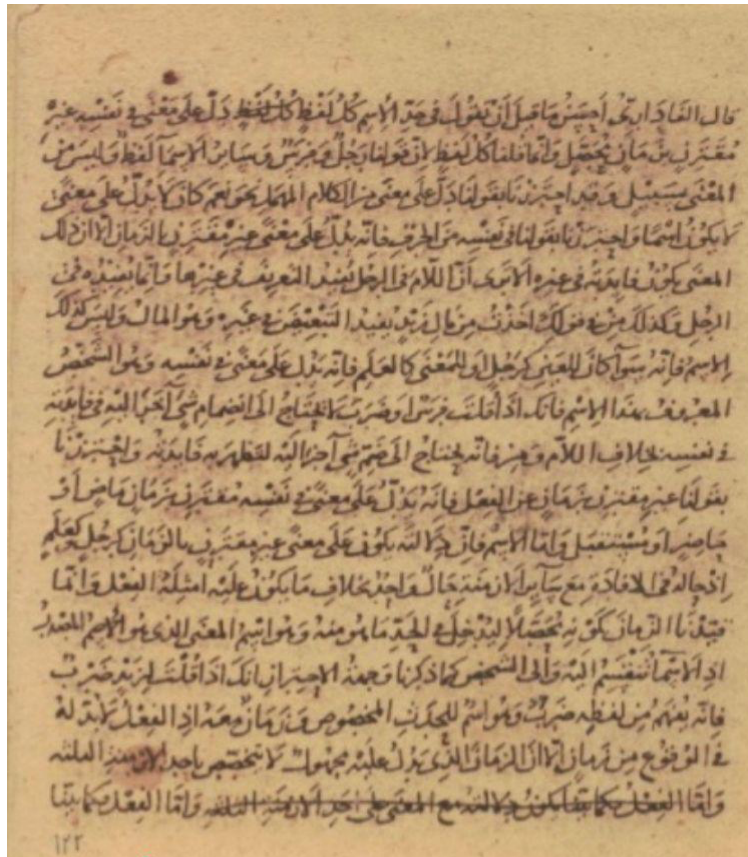 قال الفارابي أحسن ما قيل أن تقول في حد الاسم كل لفظ كل لفظ دل على معنى في نفسه غير
مقترن بزمان محصل وانما قلنا كل لفظ لان قولنا رجل وفرس وساير الاسماء لفظ وليس من
المعنى بسبيل وقد احترزنا بقولنا دل على معنى من الكلام المهمل نحو كاف لا يدل على معنى
لا يكون اسما واحترزنا بقولنا في نفسه من الحرف فانه يدل على معنى غير مقترن بالزمان الا ان ذلك
المعنى يكون فايدته في غيره الا ترى أن اللام في الرجل تفيد التعريف في غيرها وانما تفيده في
الرجل وكذلك من في قولك اخذت من مال زيد يفيد التبعيض في غيره وهو المال وليس كذلك
الاسم فانه سوآ كان للعين كرجل او للمعنى كالعلم فانه يدل على معنى في نفسه وهو الشخص
المعروف بهذا الاسم فانك اذا قلت فرس او ضرب لا يحتاج الى انضمام شيء آخر اليه في فايدته
في نفسه بخلاف اللام ومن فانه يحتاج الى ضم شيء آخر اليه لتظهر به فايدته واحترزنا
بقولنا غير مقترن بزمان عن الفعل فانه يدل على معنى في نفسه مقترن بزمان ماض او
حاضر او مستقبل واما الاسم فان دلالته يكون على معنى غير مقترن بالزمان كرجل وعلم
اذ حاله في الافادة مع ساير الازمنة حال واحد بخلاف ما يكون عليه امثلة الفعل وانما
قيدنا الزمان بكونه محصلا ليدخل في الحد ما هو منه وهو اسم المعنى الذي هو الاسم المصدر
اذ الاسماء تنقسم اليه والى الشخص كما ذكرنا وجهة الاحتراز انك اذا قلت لزيد ضرب
فانه يفهم من لفظه ضرب وهو اسم للحدث المخصوص وزمان معه اذ الفعل لا بد له
في الوقوع من زمان الا ان الزمان الذي يدل عليه مجهول لا يتخصص باحد الازمنة الثلثة
واما الفعل فكما بينا يكون دلالته مع المعنى على احد الازمنة الثلثة واما الفعل فكما بينا
١٢٢